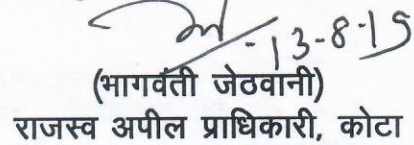 13-8-15
(भागवंती जेठवानी)
राजस्व अपील प्राधिकारी, कोटा